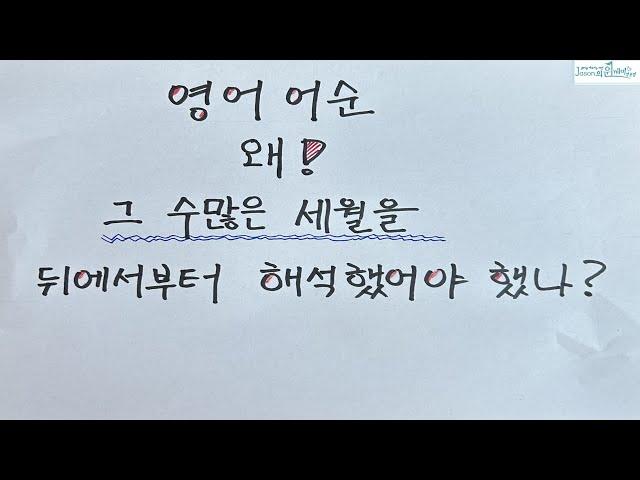 영어 어순
왜!
그 수많은 세월을
뒤에서부터 해석했어야 했나?